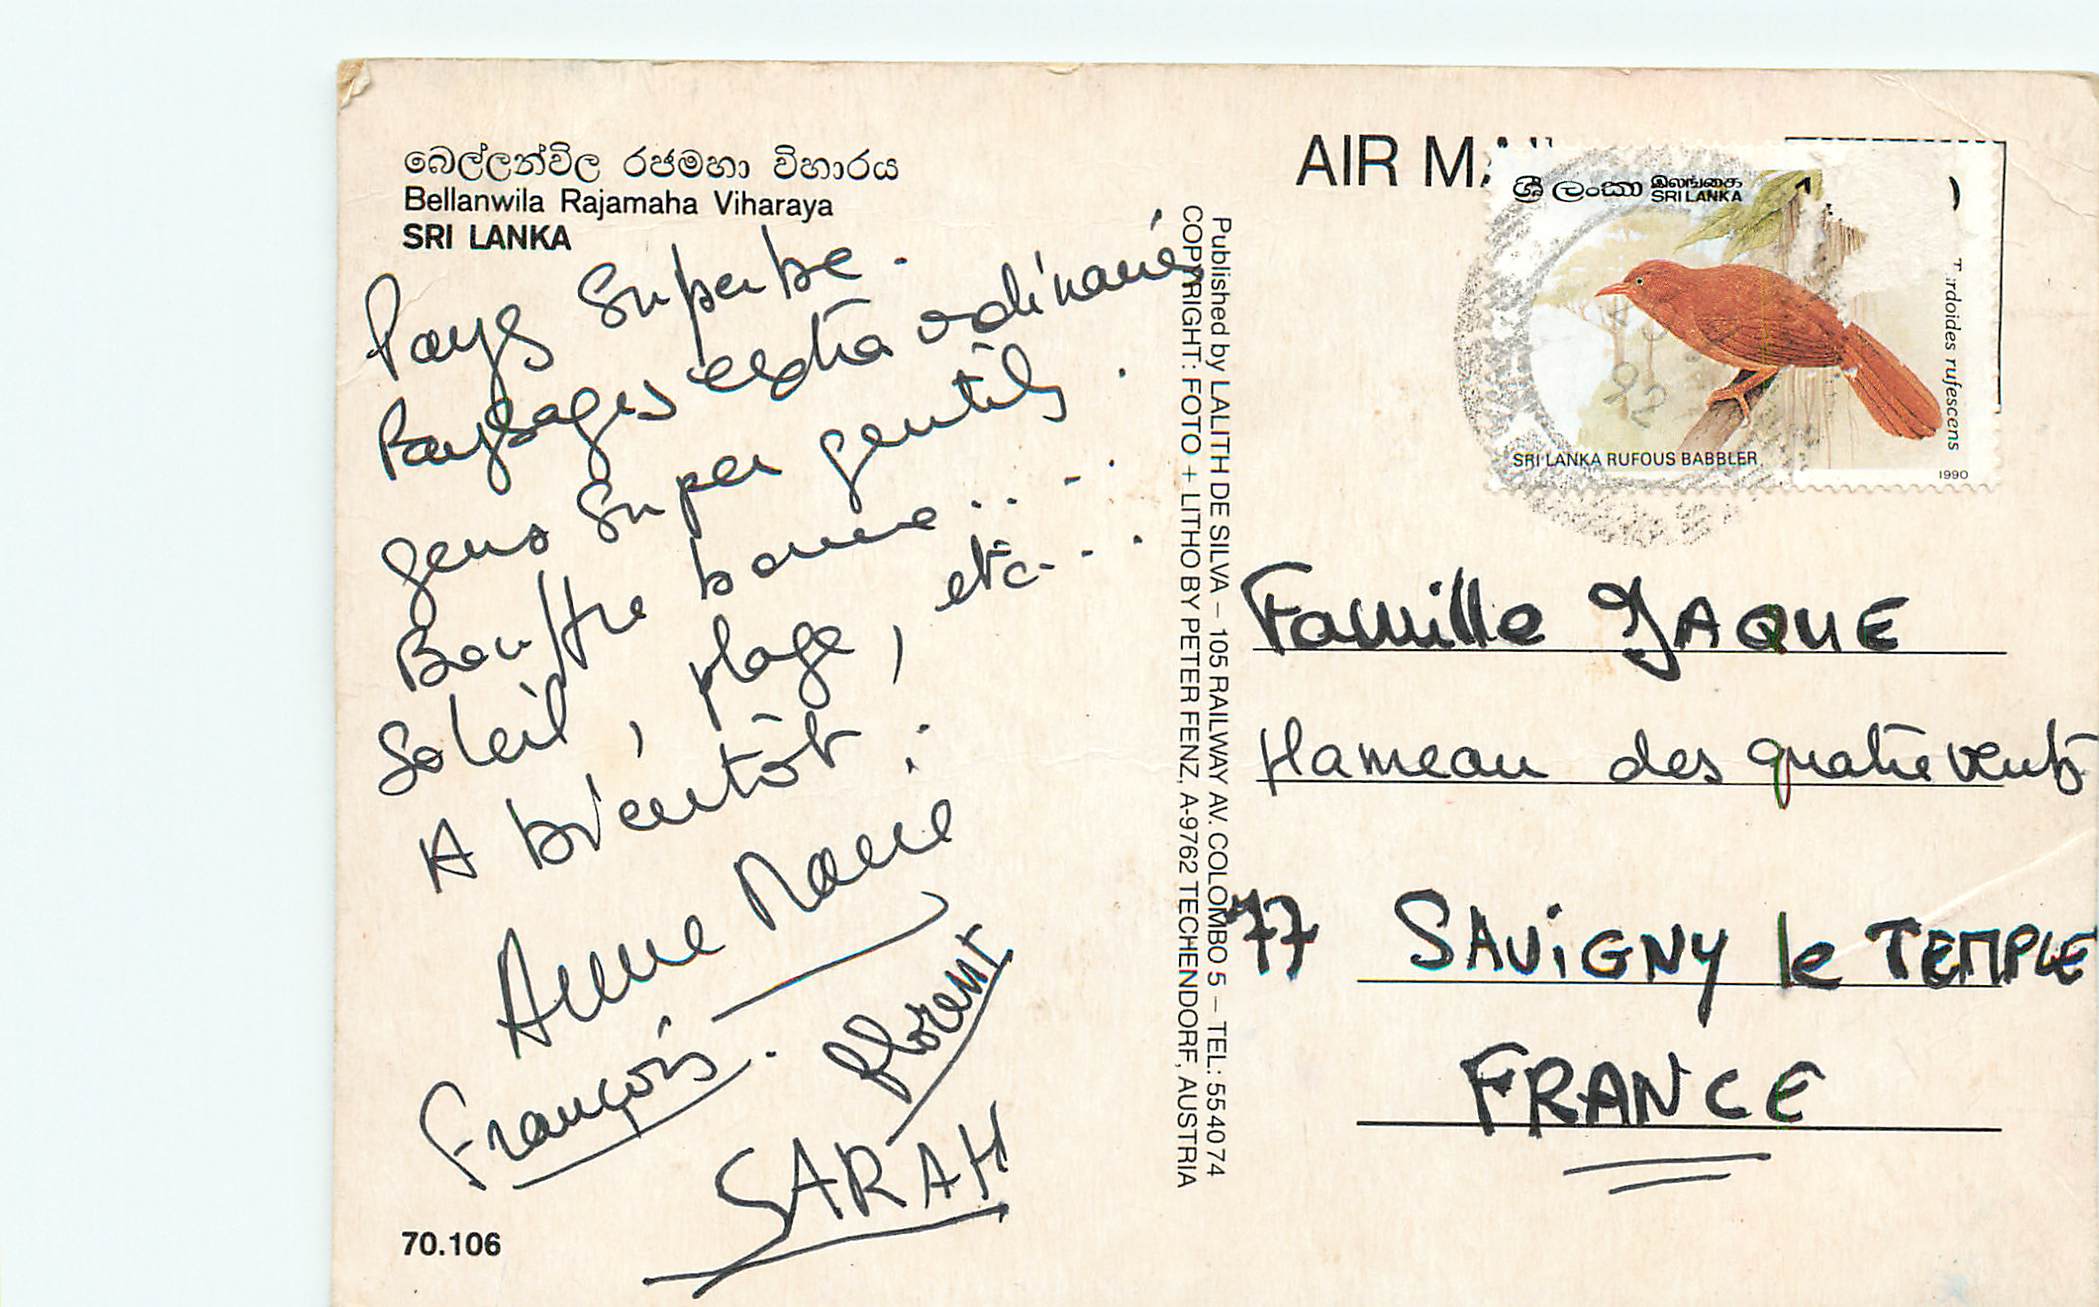 බෙල්ලන්විල රජමහා විහාරය
Bellanwila Rajamaha Viharaya
SRI LANKA
Pays superbe.
Paysages extraordinaires
gens super gentils.
Bouffe bonne.....
Soleil, plage, etc....
A bientôt.
Anne Marie
François.
florent
SARAH
70.106
Published by LALITH DE SILVA – 105 RAILWAY AV. COLOMBO 5 – TEL: 554074
COPYRIGHT: FOTO + LITHO BY PETER FENZ, A-9762 TECHENDORF, AUSTRIA
AIR
ශ්‍රී ලංකා இலங்கை
SRI LANKA
rufescens
SRI LANKA RUFOUS BABBLER
1990
92
Famille JAQUE
Hameau des quatre vents
77 SAVIGNY le TEMPLE
FRANCE